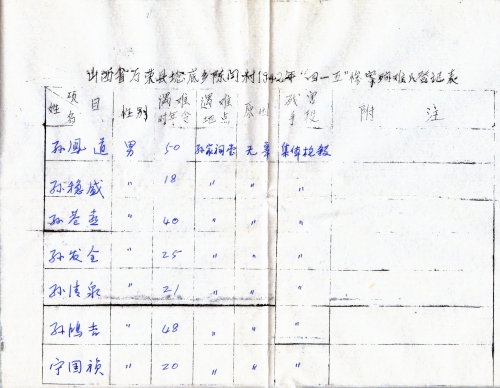 山西省万荣县埝底乡陈闫村1942年"四一五"惨案殉难人登记表
项目 姓名 性别 遇难时年令 遇难地点 原因 残害手段 附注
孙凤道 男 50 孙家祠堂 无辜 集体枪杀
孙稳威 〃 18 〃 〃 〃
孙 〃 40 〃 〃 〃
孙发全 〃 25 〃 〃
孙清泉 〃 21 〃 〃 〃
孙鸿吉 〃 48 〃 〃 〃
宁国祯 〃 20 〃 〃 〃